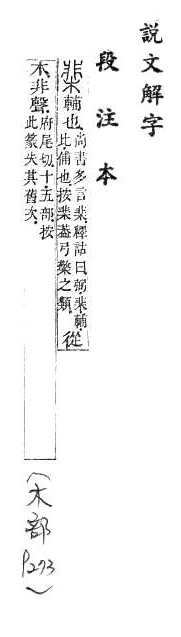 說文解字
段注本
棐輔也尚書多言棐釋詁曰弼棐輔
比俌也按棐蓋弓檠之類從
木非聲府尾切十五部按
此篆失其舊次
(木部
P273)